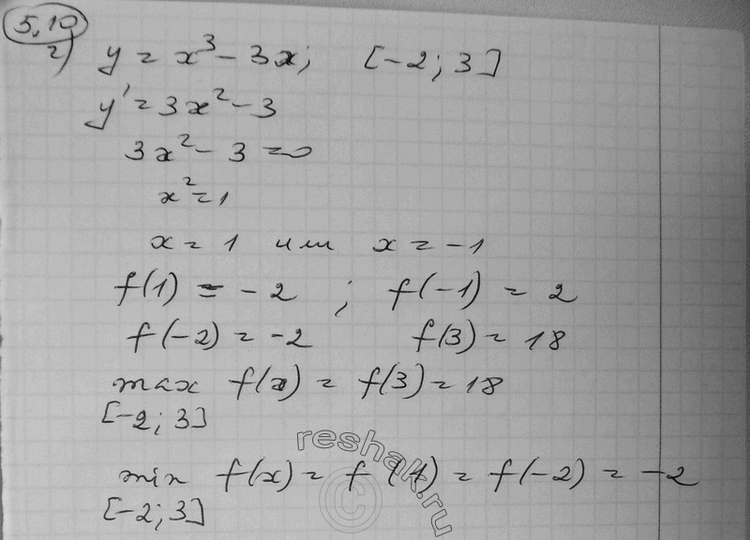 5,10
г) y = x³ - 3x; [-2; 3]
y' = 3x² - 3
3x² - 3 = 0
x² = 1
x = 1 или x = -1
f(1) = -2 ; f(-1) = 2
f(-2) = -2 f(3) = 18
max f(x) = f(3) = 18
[-2; 3]
min f(x) = f(1) = f(-2) = -2
[-2; 3]
reshak.ru
©